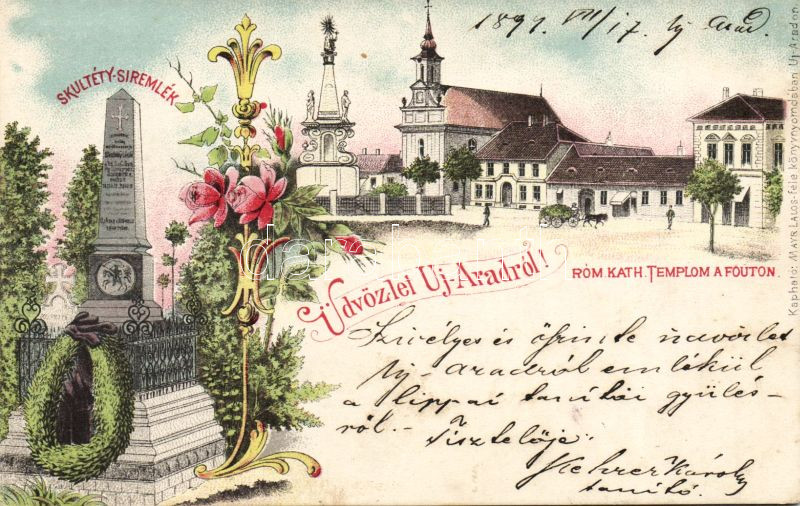 1899 VII/17. Uj Arad.
SKULTÉTY-SIREMLÉK
Üdvözlet Uj-Aradról!
RÓM. KATH. TEMPLOM A FŐUTON.
Kapható: MAYR LAJOS-féle könyvnyomdában Uj-Aradon.
Szivélyes és őszinte üdvözlet
Uj-aradról emlékül
a lippai tanítói gyülés-
ről.- Tisztelője:
Kehrer Károly
tanító.